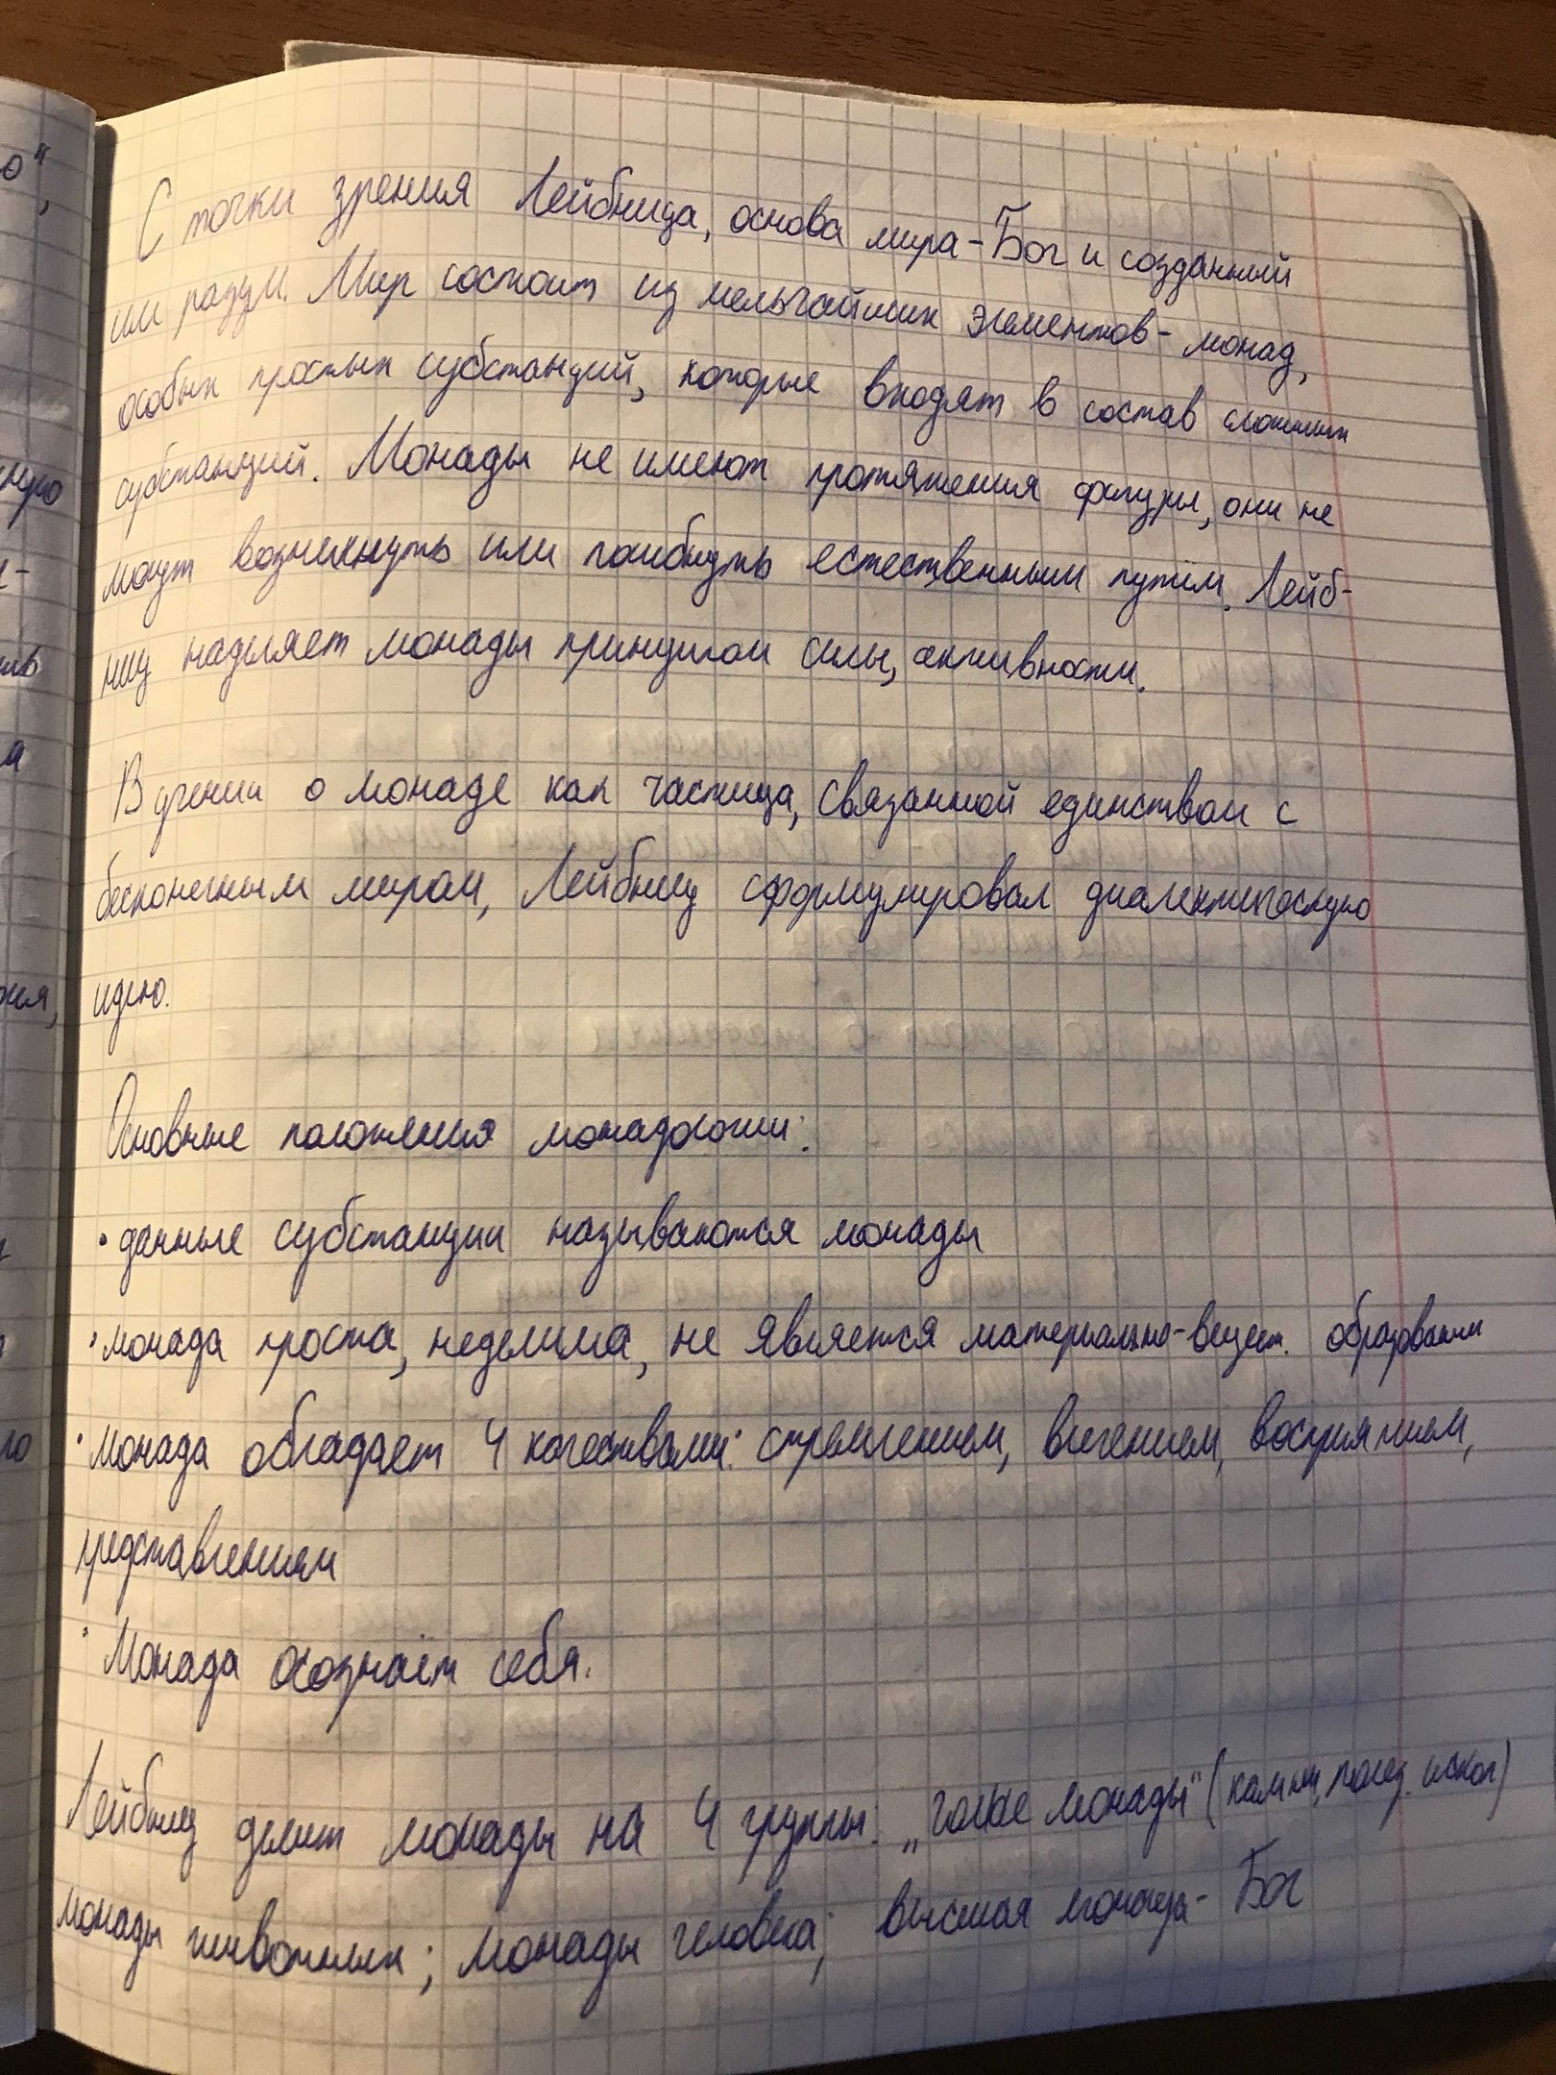 С точки зрения Лейбница, основа мира - Бог и созданный
им разум. Мир состоит из мельчайших элементов - монад,
особых простых субстанций, которые входят в состав сложных
субстанций. Монады не имеют протяжения фигуры, они не
могут возникнуть или погибнуть естественным путём. Лейб-
ниц наделяет монады принципом силы, активности.
В учении о монаде как частица, связанной единством с
бесконечным миром, Лейбниц сформулировал диалектическую
идею.
Основные положения монадологии:
• данные субстанции называются монады
• монада проста, неделима, не является материально-вещест. образованием
• монада обладает 4 качествами: стремлением, влечением, восприятием,
представлением
• Монада осознаёт себя.
Лейбниц делит монады на 4 группы: „голые монады" (камни, полез. ископ)
монады животных; монады человека; высшая монада - Бог